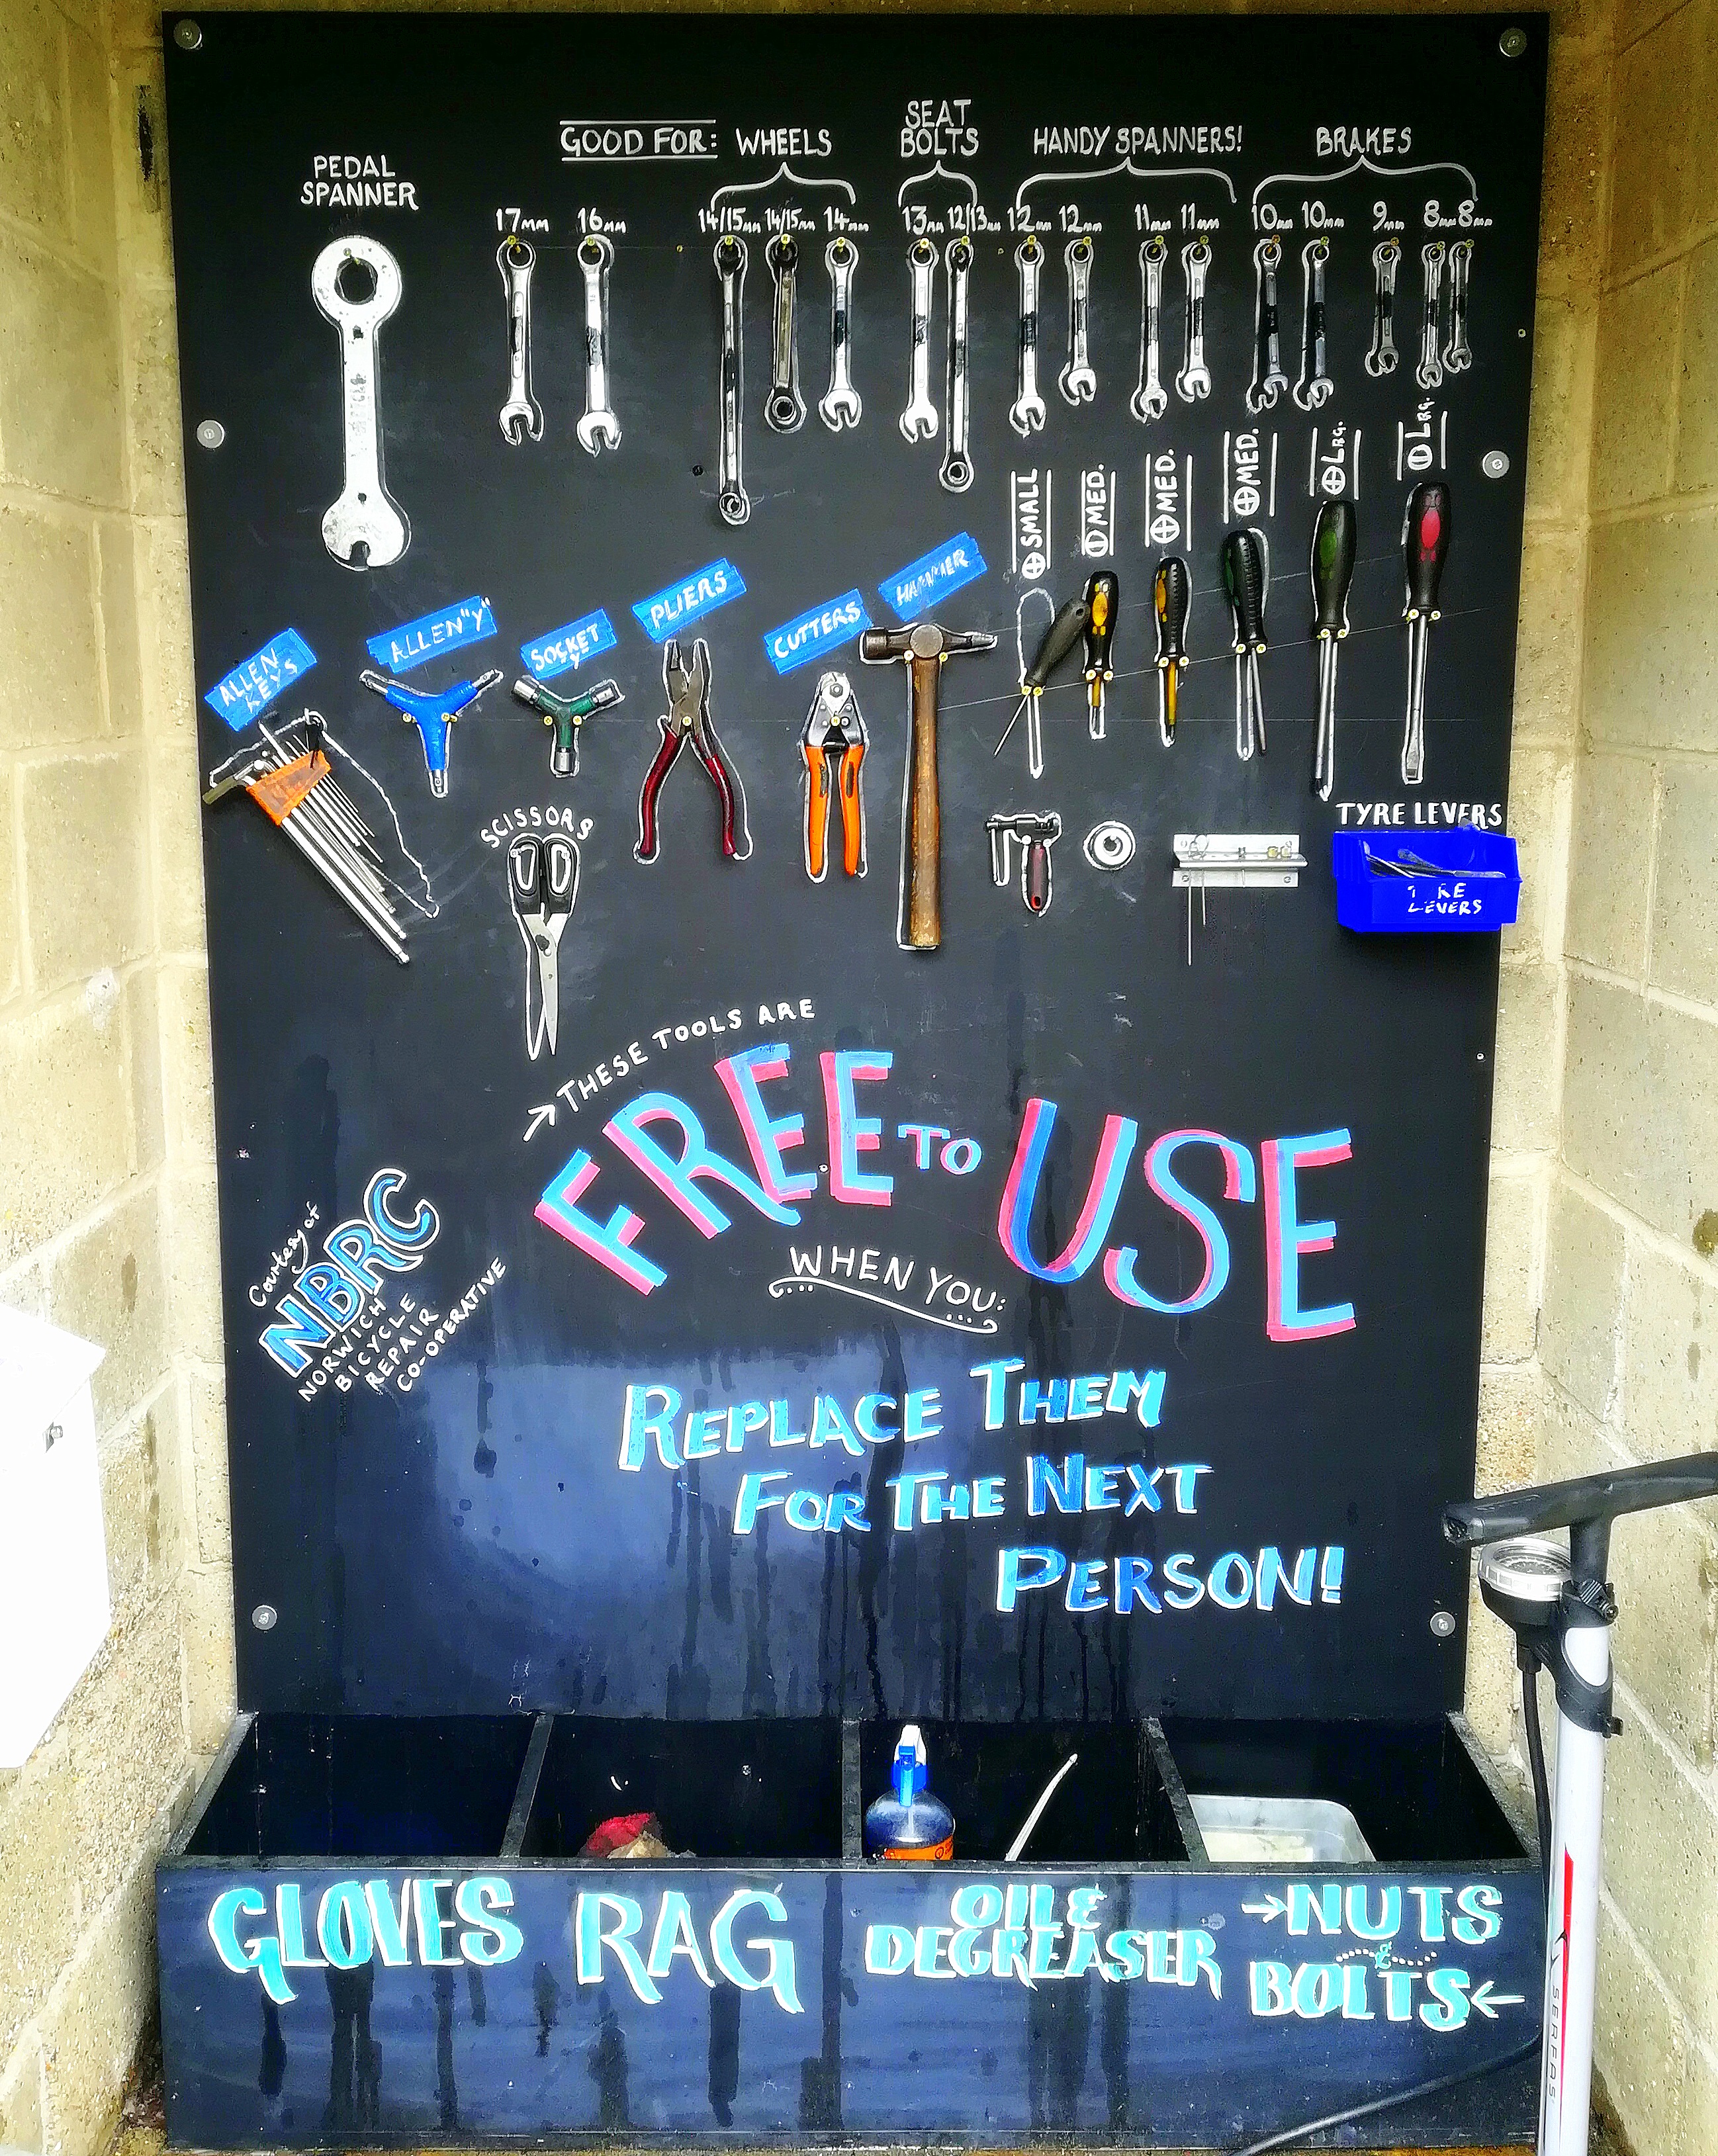 GOOD FOR: WHEELS
SEAT
BOLTS
HANDY SPANNERS!
BRAKES
PEDAL
SPANNER
17mm 16mm 14/15mm 14/15mm 14mm 13mm 12/13mm 12mm 12mm 11mm 11mm 10mm 10mm 9mm 8mm 8mm
SMALL
MED.
MED.
MED.
LRG.
LRG.
ALLEN
KEYS
ALLEN "Y"
SOCKET
Y
PLIERS
CUTTERS
HAMMER
SCISSORS
TYRE LEVERS
LEVERS
→ THESE TOOLS ARE
FREE TO USE
WHEN YOU:
REPLACE THEM
FOR THE NEXT
PERSON!
Courtesy of
NBRC
NORWICH
BICYCLE
REPAIR
CO-OPERATIVE
GLOVES
RAG
OIL &
DEGREASER
→NUTS
&
BOLTS←
SERFAS